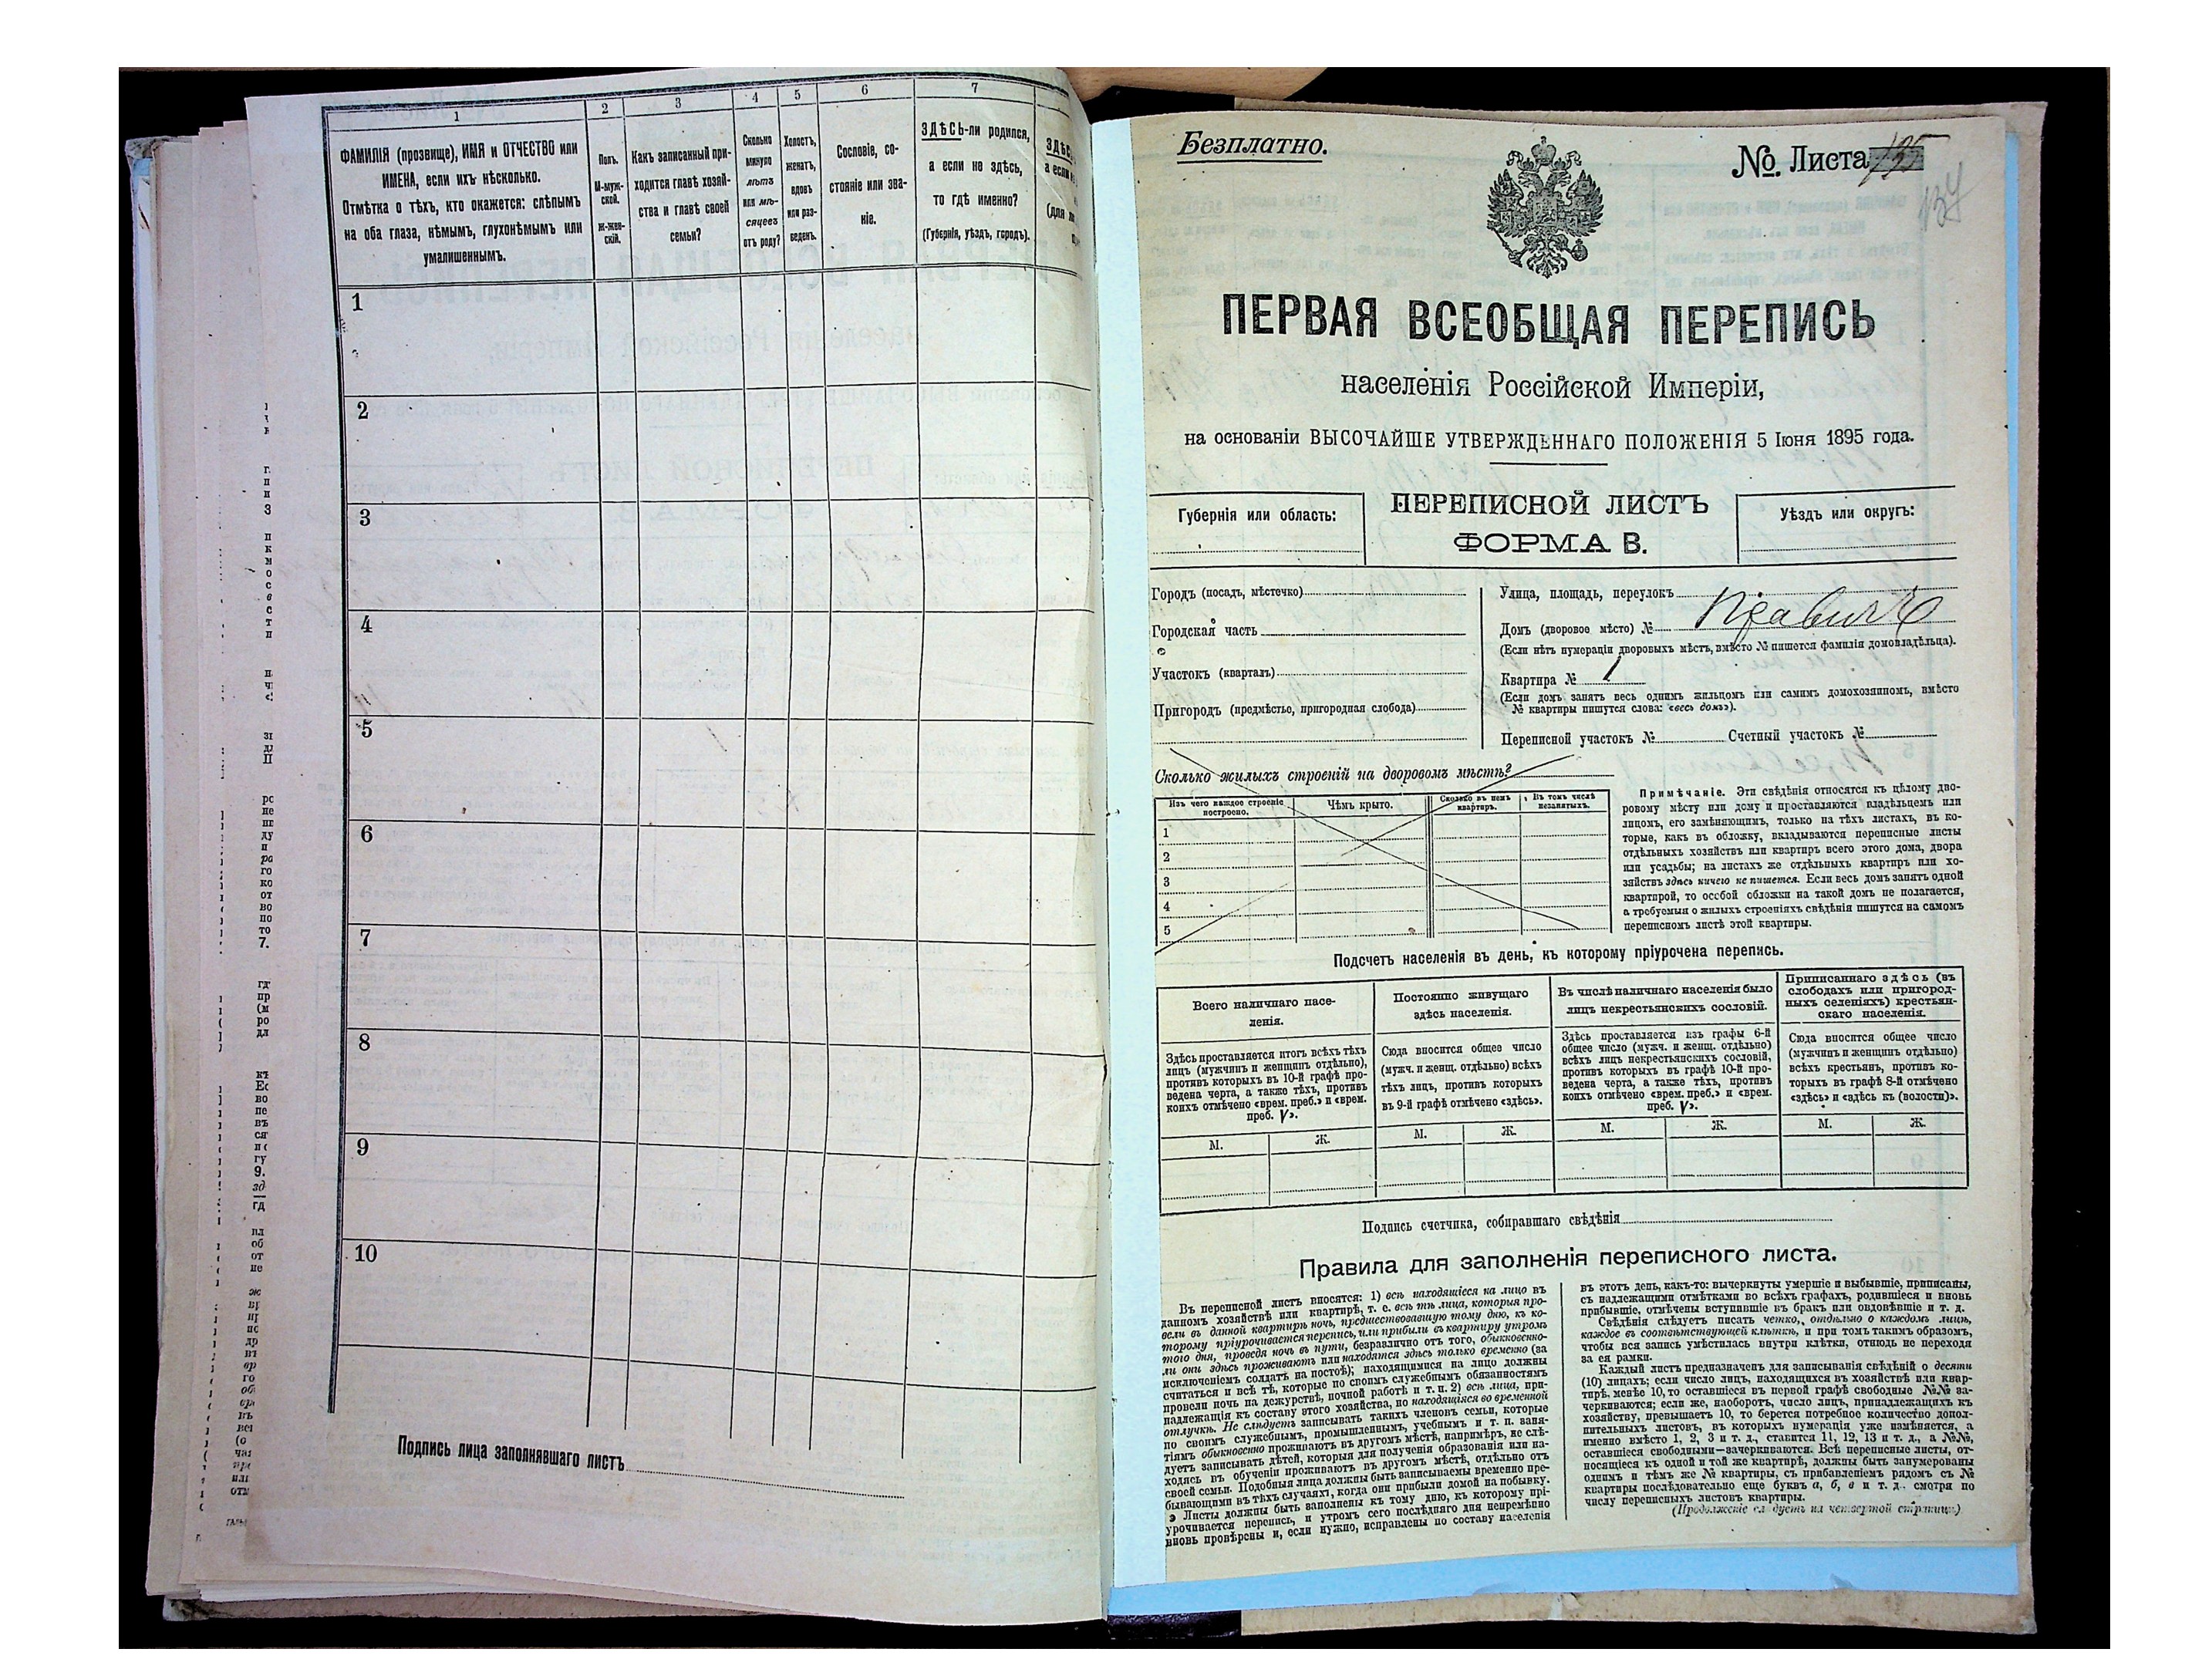 1
2
3
4
5
6
7
ФАМИЛІЯ (прозвище), ИМЯ и ОТЧЕСТВО или
ИМЕНА, если ихъ нѣсколько.
Отмѣтка о тѣхъ, кто окажется: слѣпымъ
на оба глаза, нѣмымъ, глухонѣмымъ или
умалишеннымъ.
Полъ.
М-муж-
ской.
Ж-жен-
скій.
Какъ записанный при-
ходится главѣ хозяй-
ства и главѣ своей
семьи?
Сколько
минуло
лѣтъ
или мѣ-
сяцевъ
отъ роду?
Холостъ,
женатъ,
вдовъ
или раз-
веденъ.
Сословіе, со-
стояніе или зва-
ніе.
ЗДѢСЬ-ли родился,
а если не здѣсь,
то гдѣ именно?
(Губернія, уѣздъ, городъ).
1
2
3
4
5
6
7
8
9
10
Подпись лица заполнявшаго листъ
Безплатно.
№ Листа 135
134
ПЕРВАЯ ВСЕОБЩАЯ ПЕРЕПИСЬ
населенія Россійской Имперіи,
на основаніи ВЫСОЧАЙШЕ УТВЕРЖДЕННАГО ПОЛОЖЕНІЯ 5 Іюня 1895 года.
Губернія или область:
ПЕРЕПИСНОЙ ЛИСТЪ
ФОРМА В.
Уѣздъ или округъ:
Городъ (посадъ, мѣстечко)
Городская часть
Участокъ (кварталъ)
Пригородъ (предмѣстье, пригородная слобода)
Улица, площадь, переулокъ
Домъ (дворовое мѣсто) №
(Если нѣтъ нумераціи дворовыхъ мѣстъ, вмѣсто № пишется фамилія домовладѣльца).
Квартира № 1
(Если домъ занятъ весь однимъ жильцомъ или самимъ домохозяиномъ, вмѣсто
№ квартиры пишутся слова: «весь домъ»).
Переписной участокъ № Счетный участокъ №
Сколько жилыхъ строеній на дворовомъ мѣстѣ?
Изъ чего каждое строеніе
построено.
Чѣмъ крыто.
Сколько въ немъ
квартиръ.
Въ томъ числѣ
незанятыхъ.
1
2
3
4
5
Примѣчаніе. Эти свѣдѣнія относятся къ цѣлому дво-
ровому мѣсту или дому и проставляются владѣльцемъ или
лицомъ, его замѣняющимъ, только на тѣхъ листахъ, въ ко-
торые, какъ въ обложку, вкладываются переписные листы
отдѣльныхъ хозяйствъ или квартиръ всего этого дома, двора
или усадьбы; на листахъ же отдѣльныхъ квартиръ или хо-
зяйствъ здѣсь ничего не пишется. Если весь домъ занятъ одной
квартирой, то особой обложки на такой домъ не полагается,
а требуемыя о жилыхъ строеніяхъ свѣдѣнія пишутся на самомъ
переписномъ листѣ этой квартиры.
Подсчетъ населенія въ день, къ которому пріурочена перепись.
Всего наличнаго насе-
ленія.
Постоянно живущаго
здѣсь населенія.
Въ числѣ наличнаго населенія было
лицъ некрестьянскихъ сословій.
Приписаннаго здѣсь (въ
слободахъ или пригород-
ныхъ селеніяхъ) крестьян-
скаго населенія.
Здѣсь проставляется итогъ всѣхъ тѣхъ
лицъ (мужчинъ и женщинъ отдѣльно),
противъ которыхъ въ 10-й графѣ про-
ведена черта, а также тѣхъ, противъ
коихъ отмѣчено «врем. преб.» и «врем.
преб. V».
Сюда вносится общее число
(мужч. и женщ. отдѣльно) всѣхъ
тѣхъ лицъ, противъ которыхъ
въ 9-й графѣ отмѣчено «здѣсь».
Здѣсь проставляется изъ графы 6-й
общее число (мужч. и женщ. отдѣльно)
всѣхъ лицъ некрестьянскихъ сословій,
противъ которыхъ въ графѣ 10-й про-
ведена черта, а также тѣхъ, противъ
коихъ отмѣчено «врем. преб.» и «врем.
преб. V».
Сюда вносится общее число
(мужчинъ и женщинъ отдѣльно)
всѣхъ крестьянъ, противъ ко-
торыхъ въ графѣ 8-й отмѣчено
«здѣсь» и «здѣсь къ (волости)».
М. Ж. М. Ж. М. Ж. М. Ж.
Подпись счетчика, собиравшаго свѣдѣнія
Правила для заполненія переписного листа.
Въ переписной листъ вносятся: 1) всѣ находящіеся на лицо въ
данномъ хозяйствѣ или квартирѣ, т. е. всѣ тѣ лица, которыя про-
вели въ данной квартирѣ ночь, предшествовавшую тому дню, къ ко-
торому пріурочивается перепись, или прибыли въ квартиру утромъ
того дня, проведя ночь въ пути, безразлично отъ того, обыкновенно-
ли они здѣсь проживаютъ или находятся здѣсь только временно (за
исключеніемъ солдатъ на постоѣ); находящимися на лицо должны
считаться и всѣ тѣ, которые по своимъ служебнымъ обязанностямъ
провели ночь на дежурствѣ, ночной работѣ и т. п. 2) всѣ лица, при-
надлежащія къ составу этого хозяйства, но находящіяся во временной
отлучкѣ. Не слѣдуетъ записывать такихъ членовъ семьи, которые
по своимъ служебнымъ, промышленнымъ, учебнымъ и т. п. заня-
тіямъ обыкновенно проживаютъ въ другомъ мѣстѣ, напримѣръ, не слѣ-
дуетъ записывать дѣтей, которыя для полученія образованія или на-
ходясь въ обученіи проживаютъ въ другомъ мѣстѣ, отдѣльно отъ
своей семьи. Подобныя лица должны быть записываемы временно пре-
бывающими въ тѣхъ случаяхъ, когда они прибыли домой на побывку.
Листы должны быть заполнены къ тому дню, къ которому прі-
урочивается перепись, и утромъ сего послѣдняго дня непремѣнно
вновь провѣрены и, если нужно, исправлены по составу населенія
въ этотъ день, какъ-то: вычеркнуты умершіе и выбывшіе, приписаны,
съ надлежащими отмѣтками во всѣхъ графахъ, родившіеся и вновь
прибывшіе, отмѣчены вступившіе въ бракъ или овдовѣвшіе и т. д.
Свѣдѣнія слѣдуетъ писать четко, отдѣльно о каждомъ лицѣ,
каждое въ соотвѣтствующей клѣткѣ, и при томъ такимъ образомъ,
чтобы вся запись умѣстилась внутри клѣтки, отнюдь не переходя
за ея рамки.
Каждый листъ предназначенъ для записыванія свѣдѣній о десяти
(10) лицахъ; если число лицъ, находящихся въ хозяйствѣ или квар-
тирѣ, менѣе 10, то оставшіеся въ первой графѣ свободные №№ за-
черкиваются; если же, наоборотъ, число лицъ, принадлежащихъ къ
хозяйству, превышаетъ 10, то берется потребное количество допол-
нительныхъ листовъ, въ которыхъ нумерація уже измѣняется, а
именно вмѣсто 1, 2, 3 и т. д., ставится 11, 12, 13 и т. д., а №№,
оставшіеся свободными—зачеркиваются. Всѣ переписные листы, от-
носящіеся къ одной и той же квартирѣ, должны быть занумерованы
однимъ и тѣмъ же № квартиры, съ прибавленіемъ рядомъ съ №
квартиры послѣдовательно еще буквъ а, б, в и т. д. смотря по
числу переписныхъ листовъ квартиры.
(Продолженіе слѣдуетъ на четвертой страницѣ)